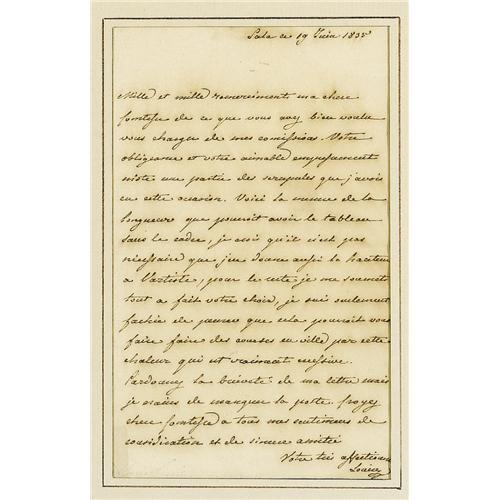 Sala ce 19 Juin 1835
Mille et mille remerciments ma chere
Comtesse de ce que vous avez bien voulu
vous charger de mes comissions. Votre
obligeance et votre aimable empressement
m'ote une partie des scrupules que j'avois
en cette occasion. Voici la mesure de la
longueur que pouroit avoir le tableau
sans le cadre, je crois qu'il n'est pas
nécessaire que j'en donne aussi la hauteur
a l'artiste, pour le reste je me soumet
tout a fait votre choix, je suis seulement
fachée de penser que cela pouroit vous
faire faire des courses en ville par cette
chaleur qui est vraiment excessive.
Pardonnez la brieveté de ma lettre mais
je crains de manquer la poste. Croyez
chere Comtesse a tous mes sentimens de
considération et de sincere amitié
Votre tres affectionnée
Louise